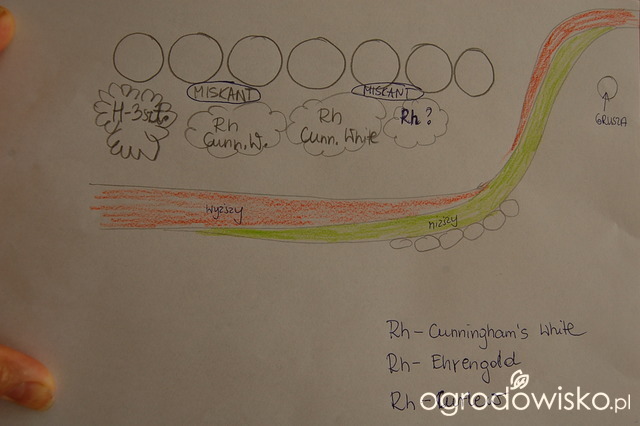 MISKANT
MISKANT
H-3szt.
Cunn.W.
Rh
Cunn.W.
Rh
Cunn. White
Rh?
GRUSZA
wyższy
niższy
Rh - Cunningham's White
Rh - Ehrengold
Rh -
ogrodowisko.pl